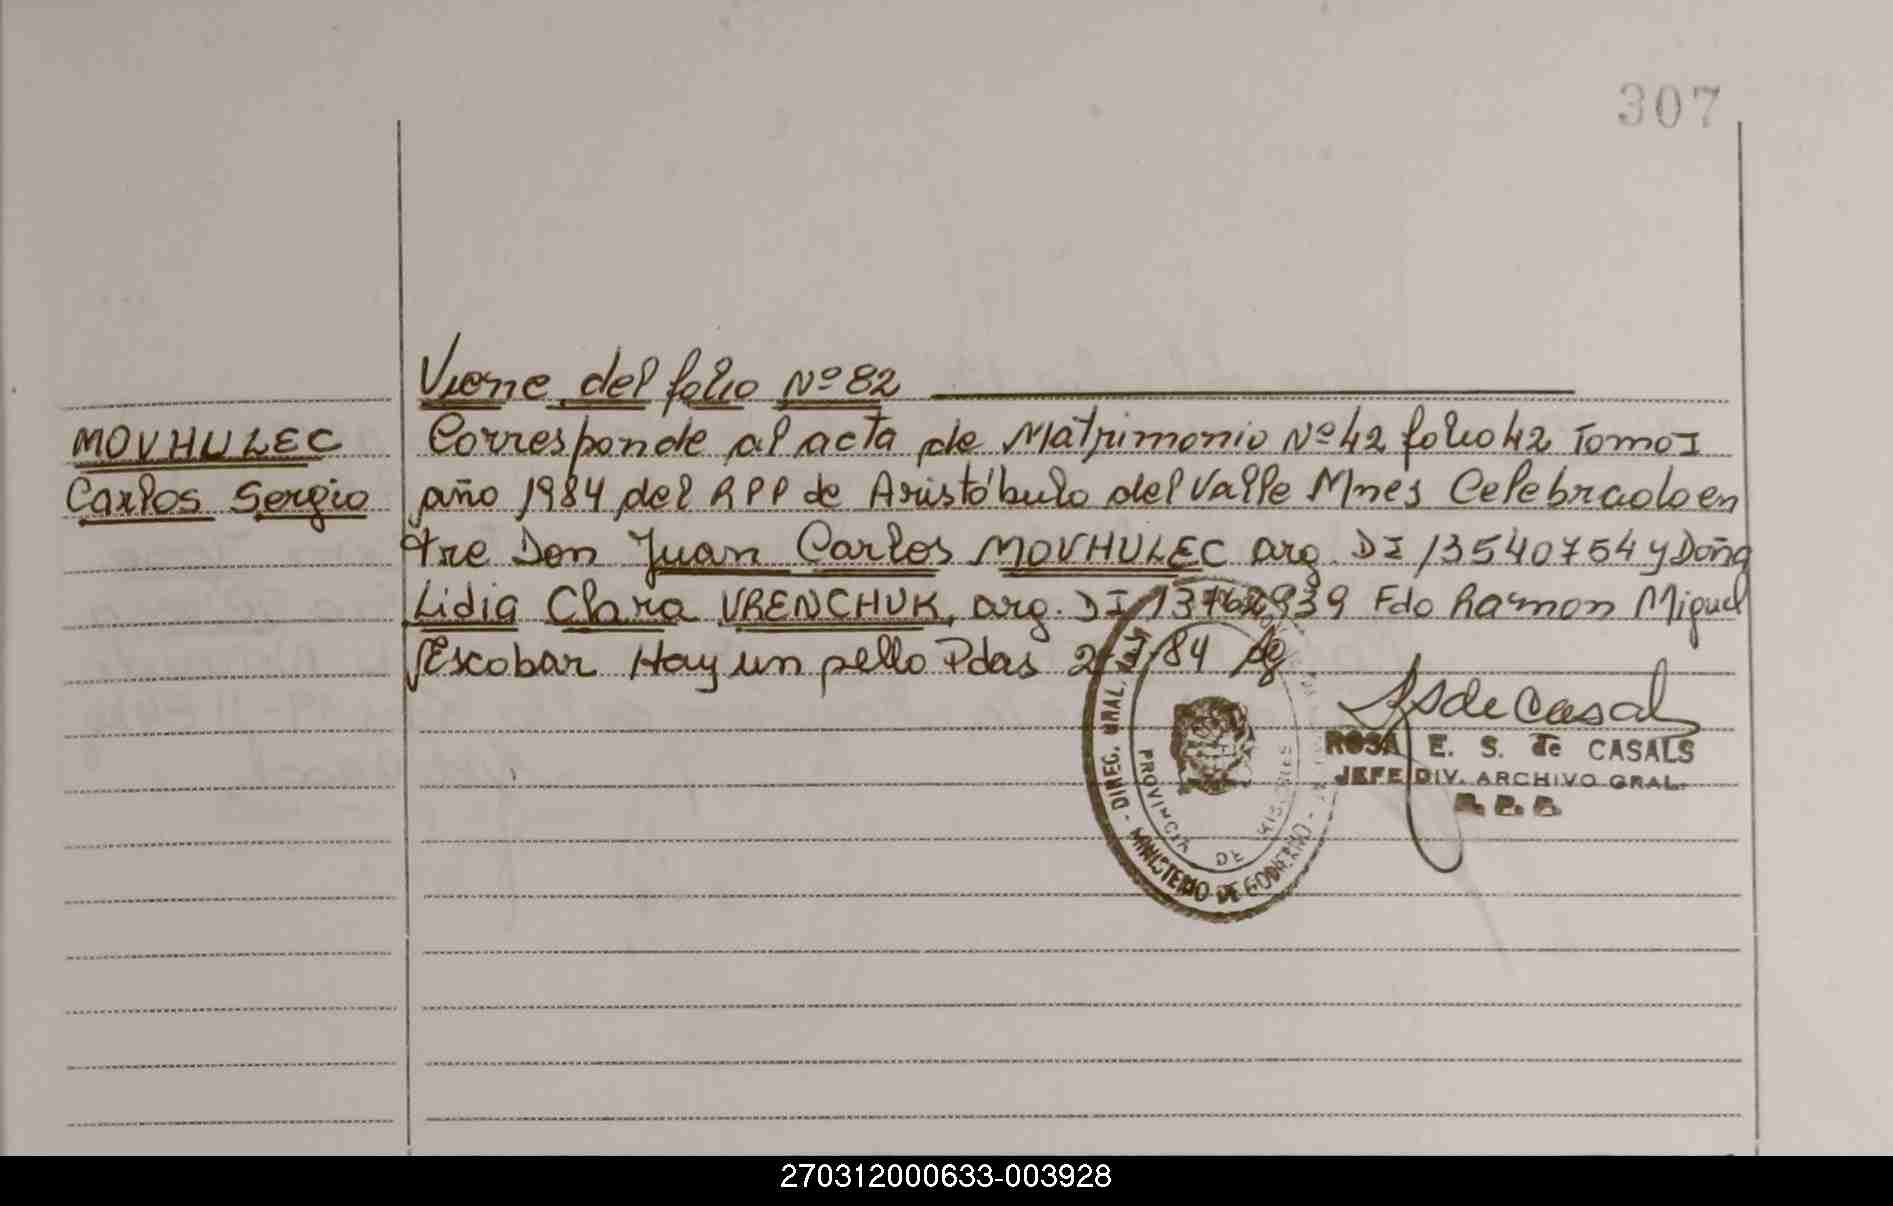 307
Viene del folio Nº 82
MOVHULEC
Carlos Sergio
Corresponde al acta de Matrimonio Nº 42 folio 42 Tomo I
año 1984 del RPP de Aristóbulo del Valle Mnes Celebrado en
tre Don Juan Carlos MOVHULEC arg. DI 13540754 y Doña
Lidia Clara URENCHUK, arg. DI Fdo Ramon Miguel
Escobar Hay un sello Pdas 84
Rs de Casals
ROSA E. S. de CASALS
JEFE DIV. ARCHIVO GRAL.
DIREC. GRAL.
MINISTERIO DE GOBIERNO
PROVINCIA DE MISIONES
270312000633-003928